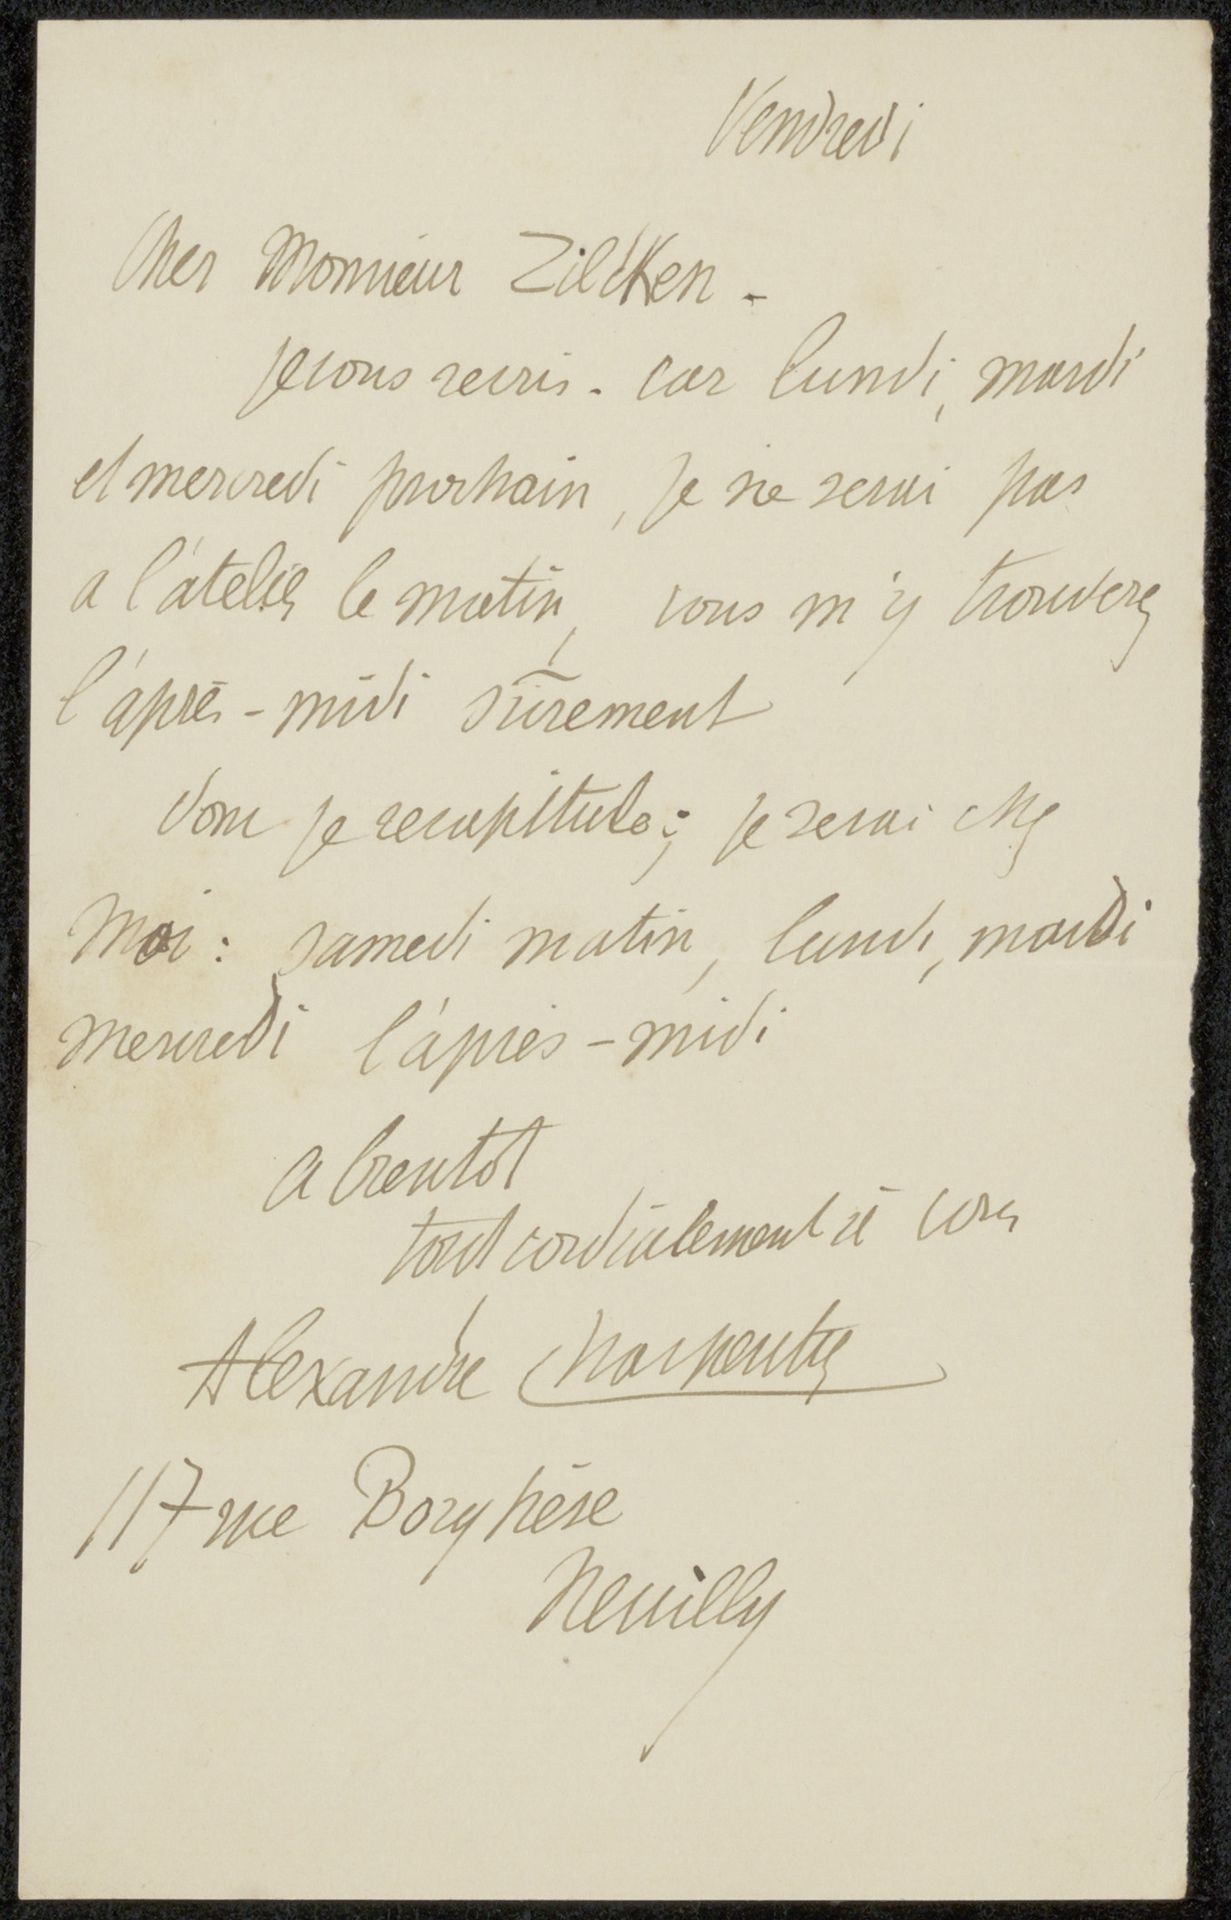 Vendredi
Cher Monsieur Zilcken -
je vous recris - car lundi, mardi
et mercredi prochain, je ne serai pas
a l'atelier le matin, vous m'y trouverez
l'après-midi sûrement
donc je recapitule; je serai chez
moi : samedi matin, lundi, mardi
mercredi l'après-midi
a bientot
tout cordialement à vous
Alexandre Charpentier
117 rue Borghèse
Neuilly